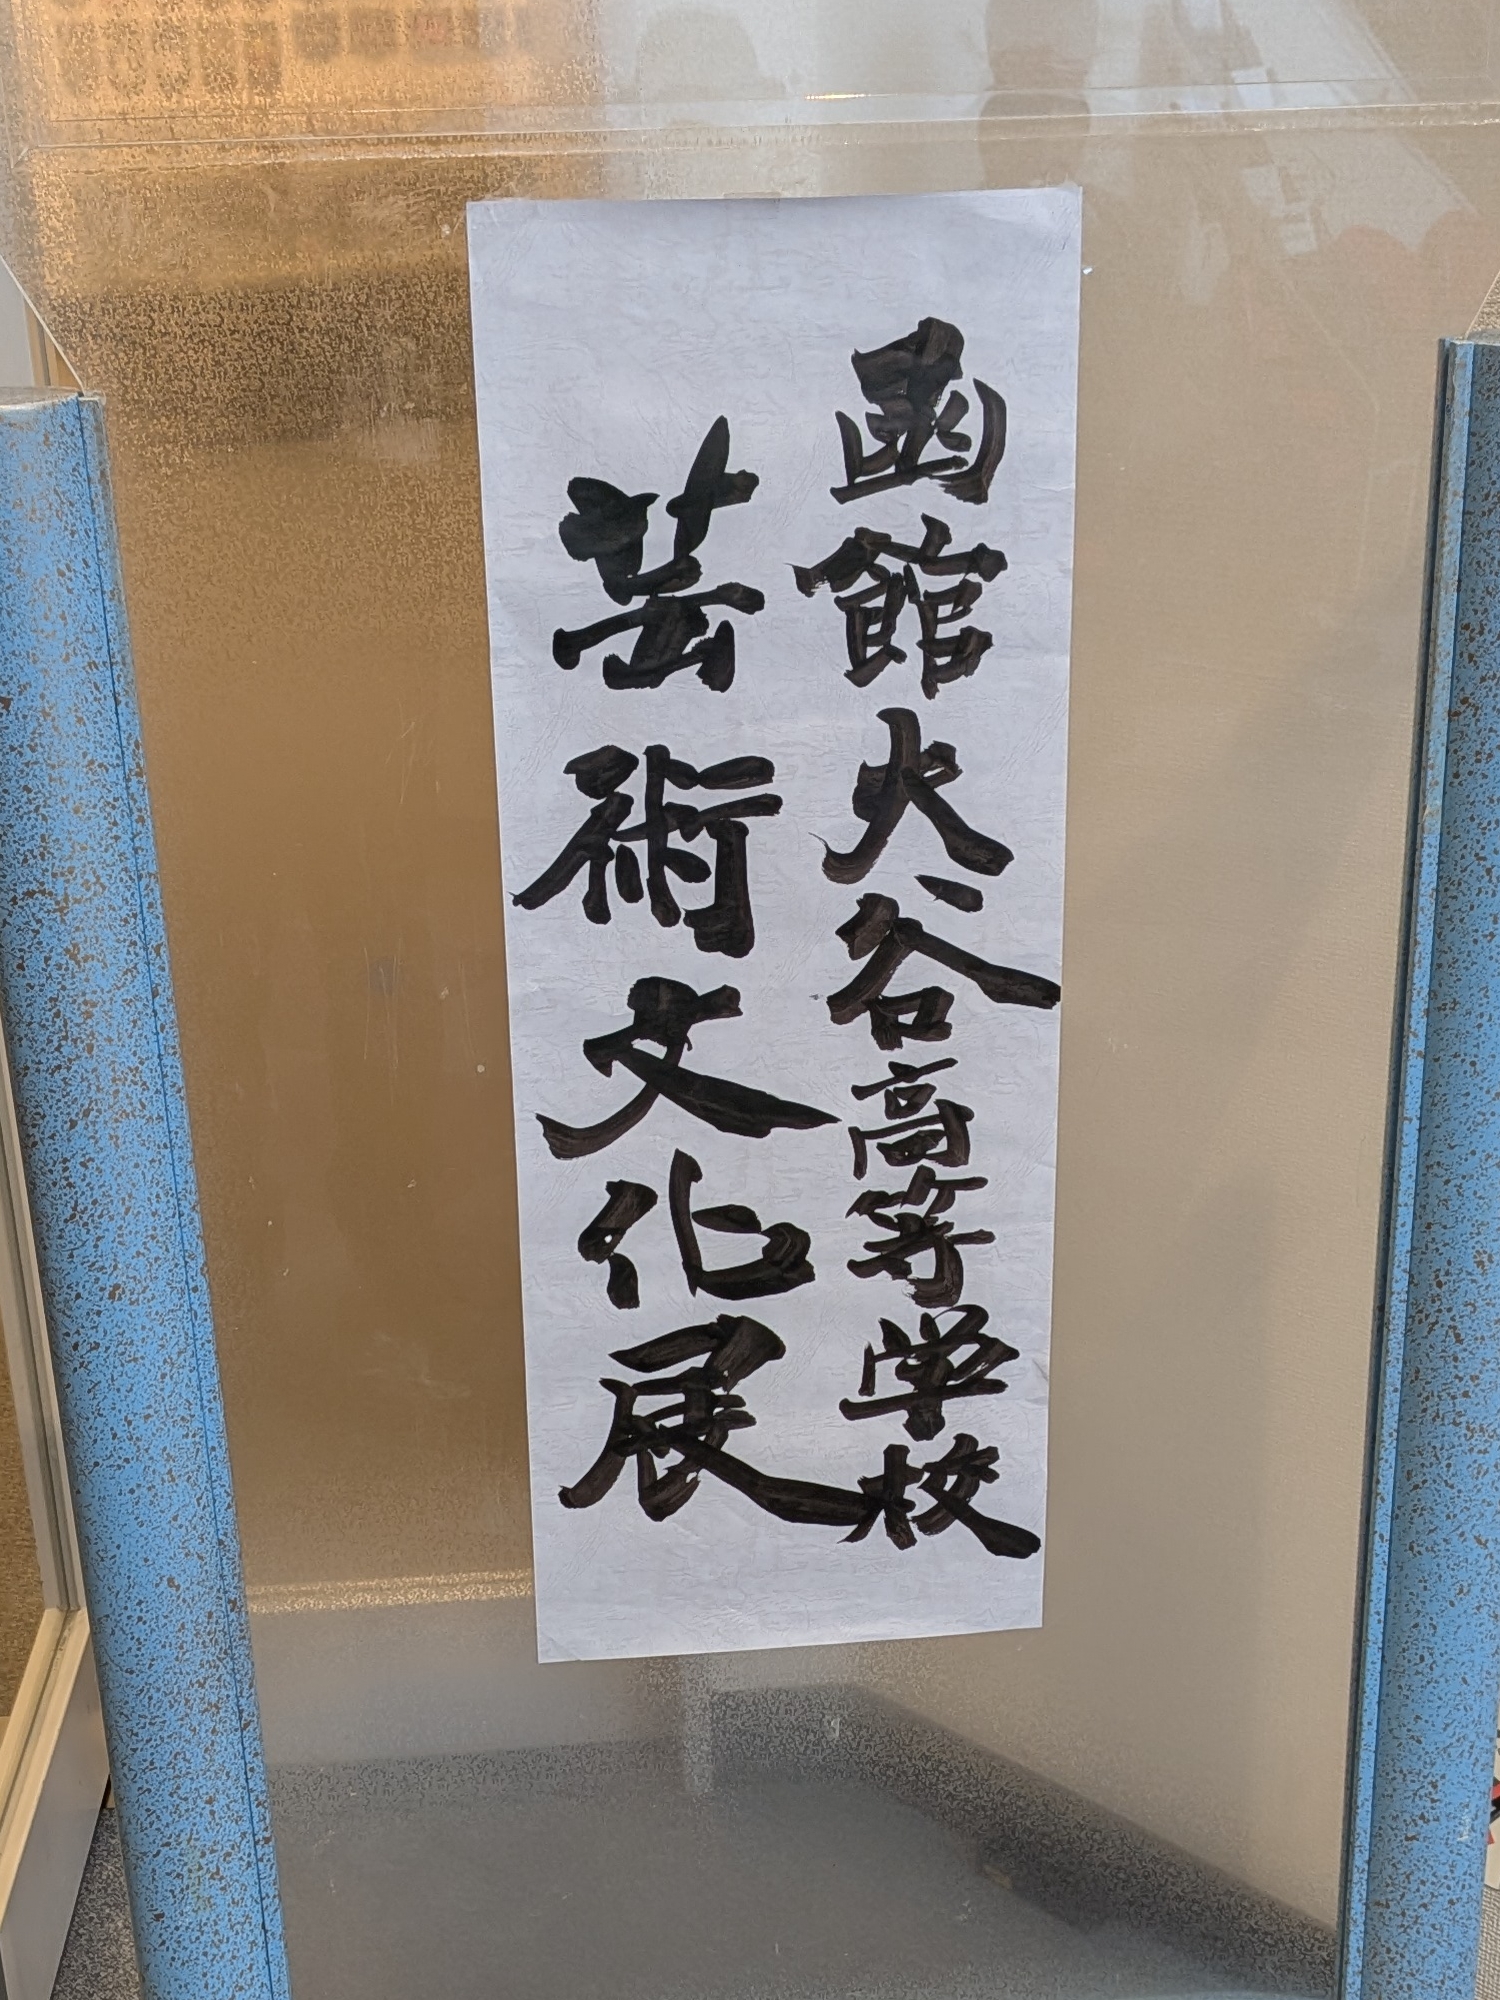 函館大谷高等学校
芸術文化展